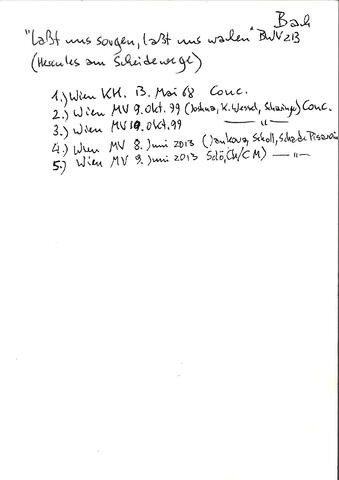 Bach
"Laßt uns sorgen, laßt uns wachen" BWV 213
(Hercules am Scheidewege)
1.) Wien KH. 13. Mai 68 Conc.
2.) Wien MV 9. Okt. 99 (Joshua, K. Wessel, Schasinger) Conc.
3.) Wien MV 10. Okt. 99 — " —
4.) Wien MV 8. Juni 2013 (Jankova, Scholl, Schade,
5.) Wien MV 9. Juni 2013 CM) — " —